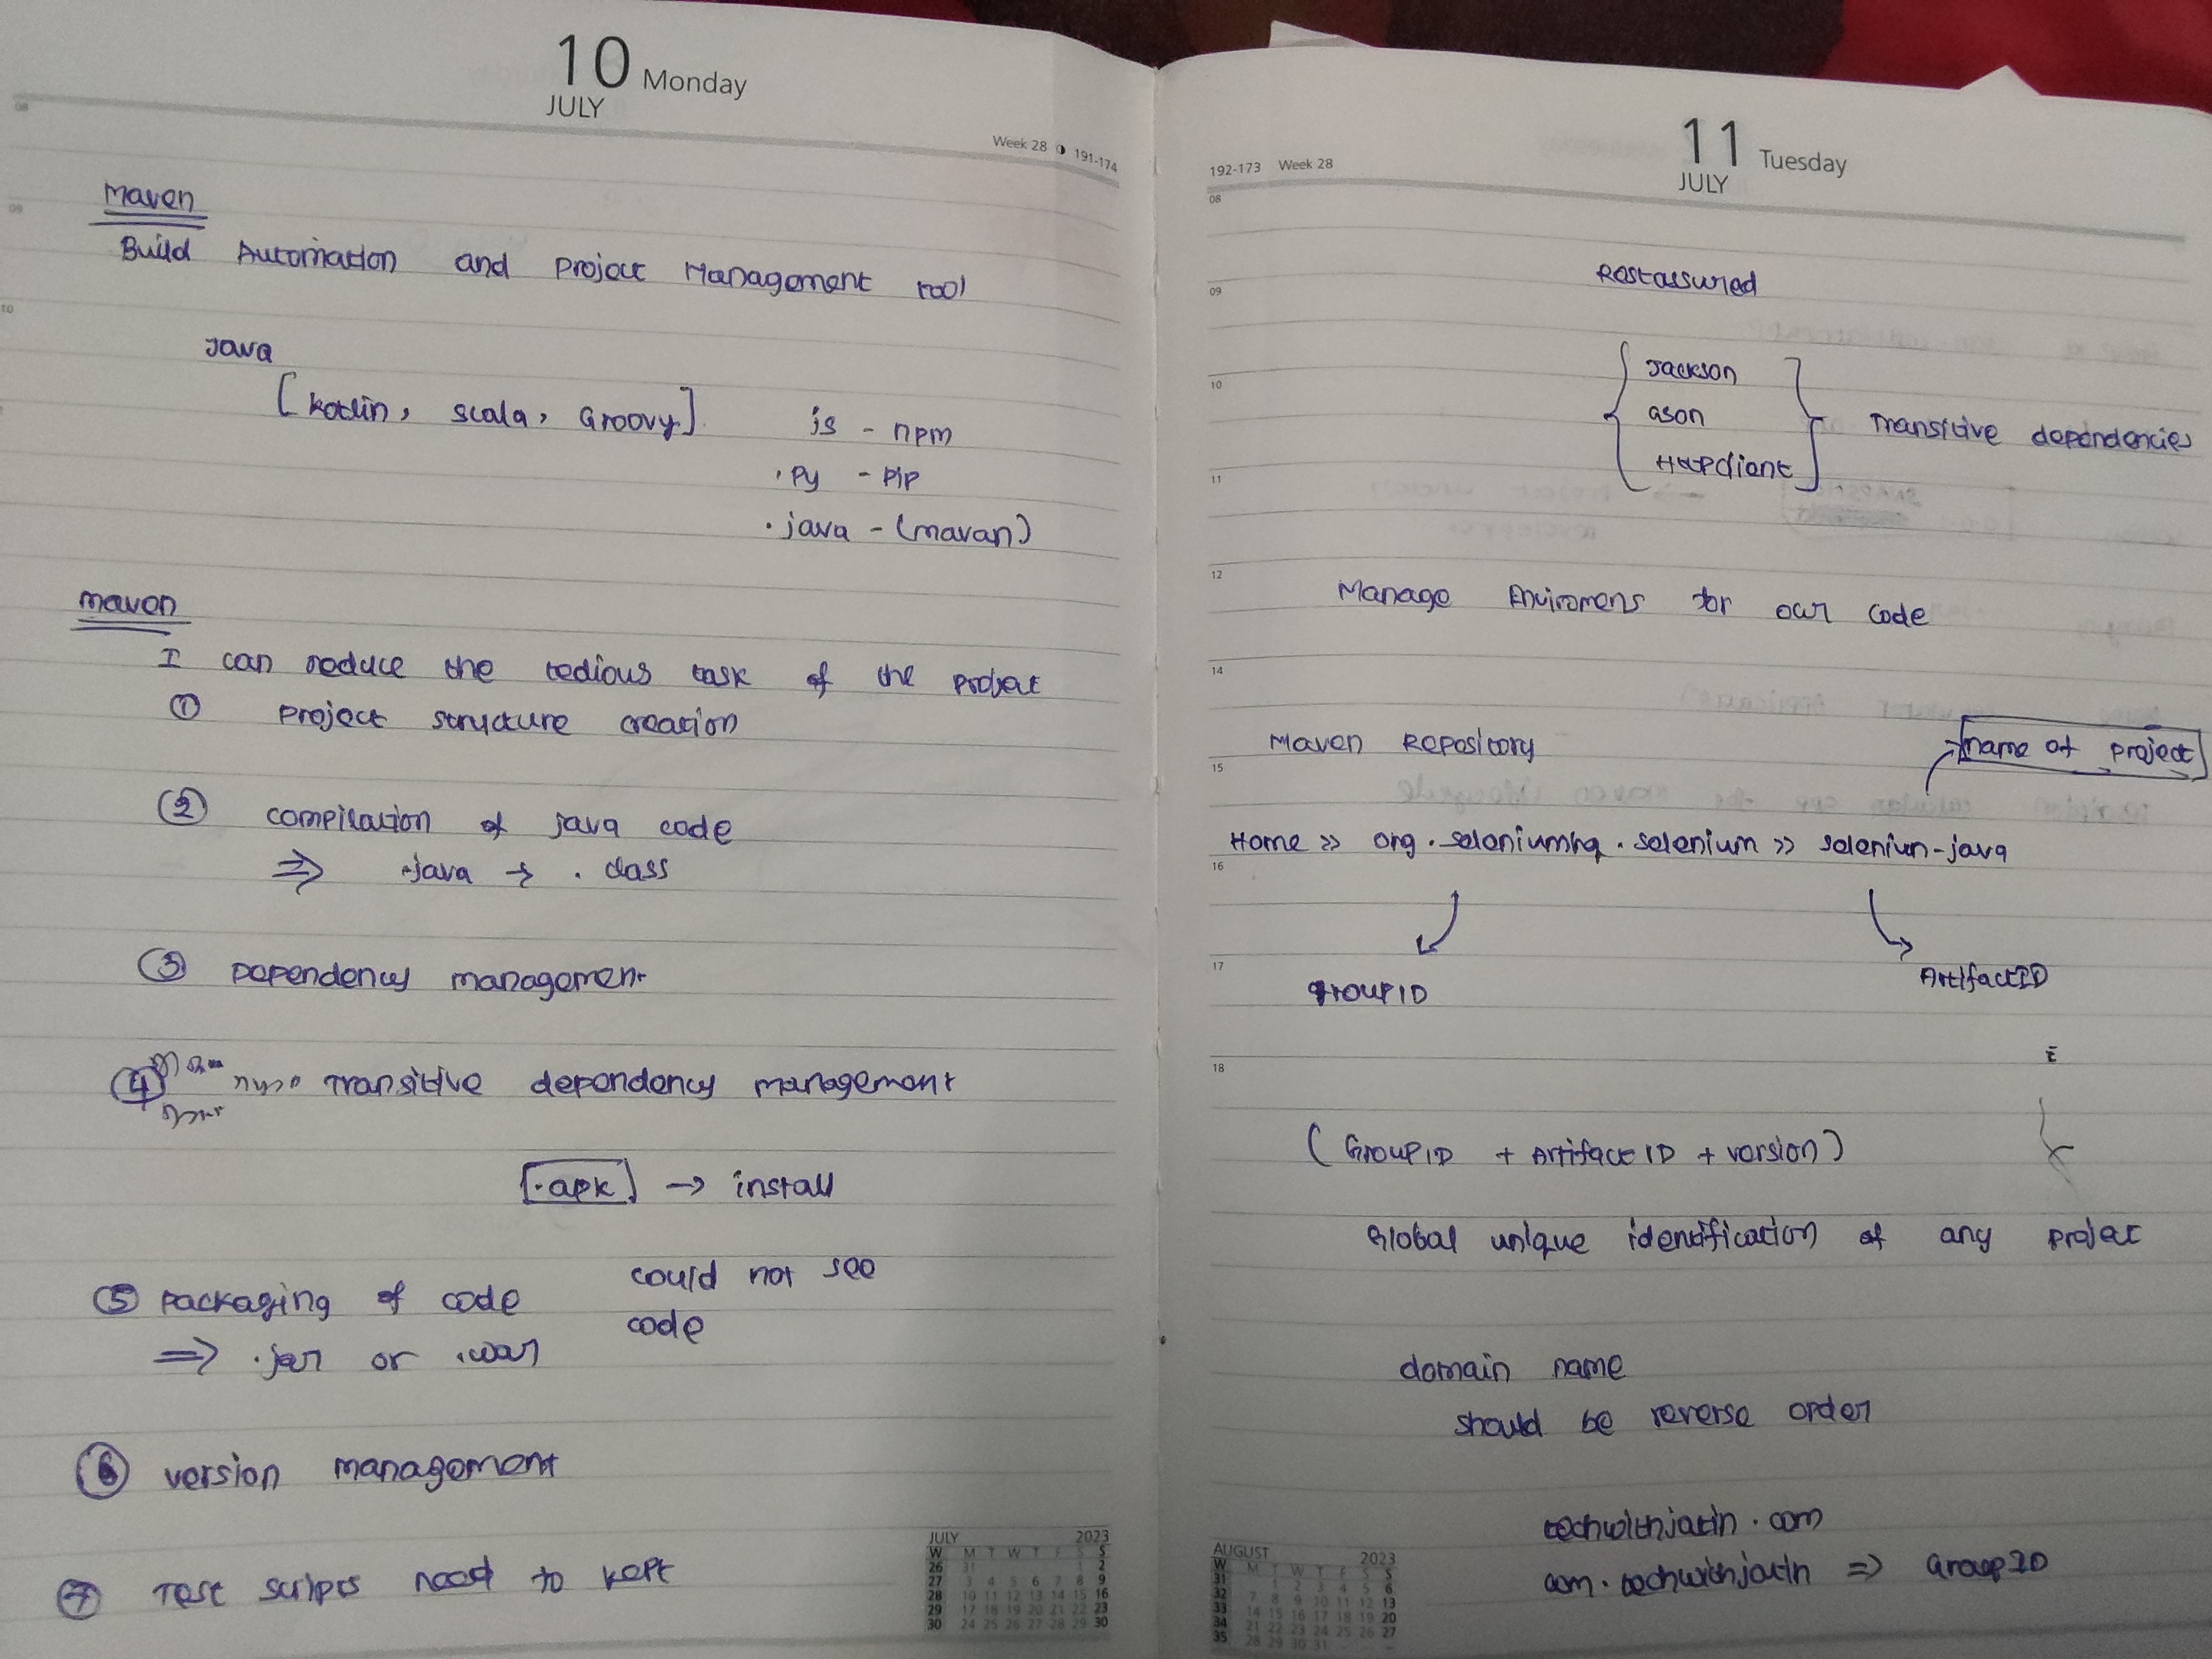 10 Monday
JULY
Week 28 191-174
08
maven
09
Build Automation and Project Management tool
10
Java
[Kotlin, Scala, Groovy]
js - npm
.Py - PIP
.java - (mavan)
maven
I can reduce the tedious task of the project
① Project structure creation
② compilation of java code
⇒ .java → .class
③ Dependency management
④ Transitive dependency management
[.apk] → install
⑤ Packaging of code
could not see
code
⇒ .jar or .war
⑥ version management
⑦ Test scripts need to kept
JULY 2023
W M T W T F S S
26 31 1 2
27 3 4 5 6 7 8 9
28 10 11 12 13 14 15 16
29 17 18 19 20 21 22 23
30 24 25 26 27 28 29 30
11 Tuesday
JULY
192-173 Week 28
08
Restassured
09
Jackson
10
ason
Transitive dependencies
Httpclient
11
12
Manage Enviromens for our code
14
Maven Repository
name of project
15
Home >> org.seleniumhq.selenium >> seleniun-java
16
17
GroupID
ArtifactID
18
(GroupID + ArtifactID + version)
Global unique identification of any project
domain name
should be reverse order
techwithjatin.com
com.techwithjatin ⇒ GroupID
AUGUST 2023
W M T W T F S S
31 1 2 3 4 5 6
32 7 8 9 10 11 12 13
33 14 15 16 17 18 19 20
34 21 22 23 24 25 26 27
35 28 29 30 31